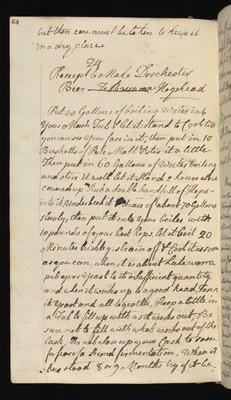 64
but then care must be taken to keep it
in a dry place
Receipt to Make Dorchester
Beer To Brew one Hogshead
Put 20 Gallons of boiling Water into
Your Mash Tub & let it stand to Cool till
you can see Your face in it, then put in 10
Bushells of Pale Malt & stir it a little
Then put in 60 Gallons of Water boiling
and stir it well let it stand 3 hours close
covered up Rub a double handful of Hops
into the Underbed it of about 70 Gallons
slowly, then put it into your boiler with
10 pounds of your best Hops, let it boil 20
Minutes briskly, strain off & Cool it as soon
as you can, when it is about Lukewarm
put your Yeast to it a sufficient quantity
and when it works up to a good head, Tunn it
Yeast and all together, keep a little in
a Tub to fill up with as it works out, Be
sure not to fill with what works out of the
Cask, do not close up your Cask to soon
for fear of a second fermentation, When it
has stood 8 or 9 Months try if it be